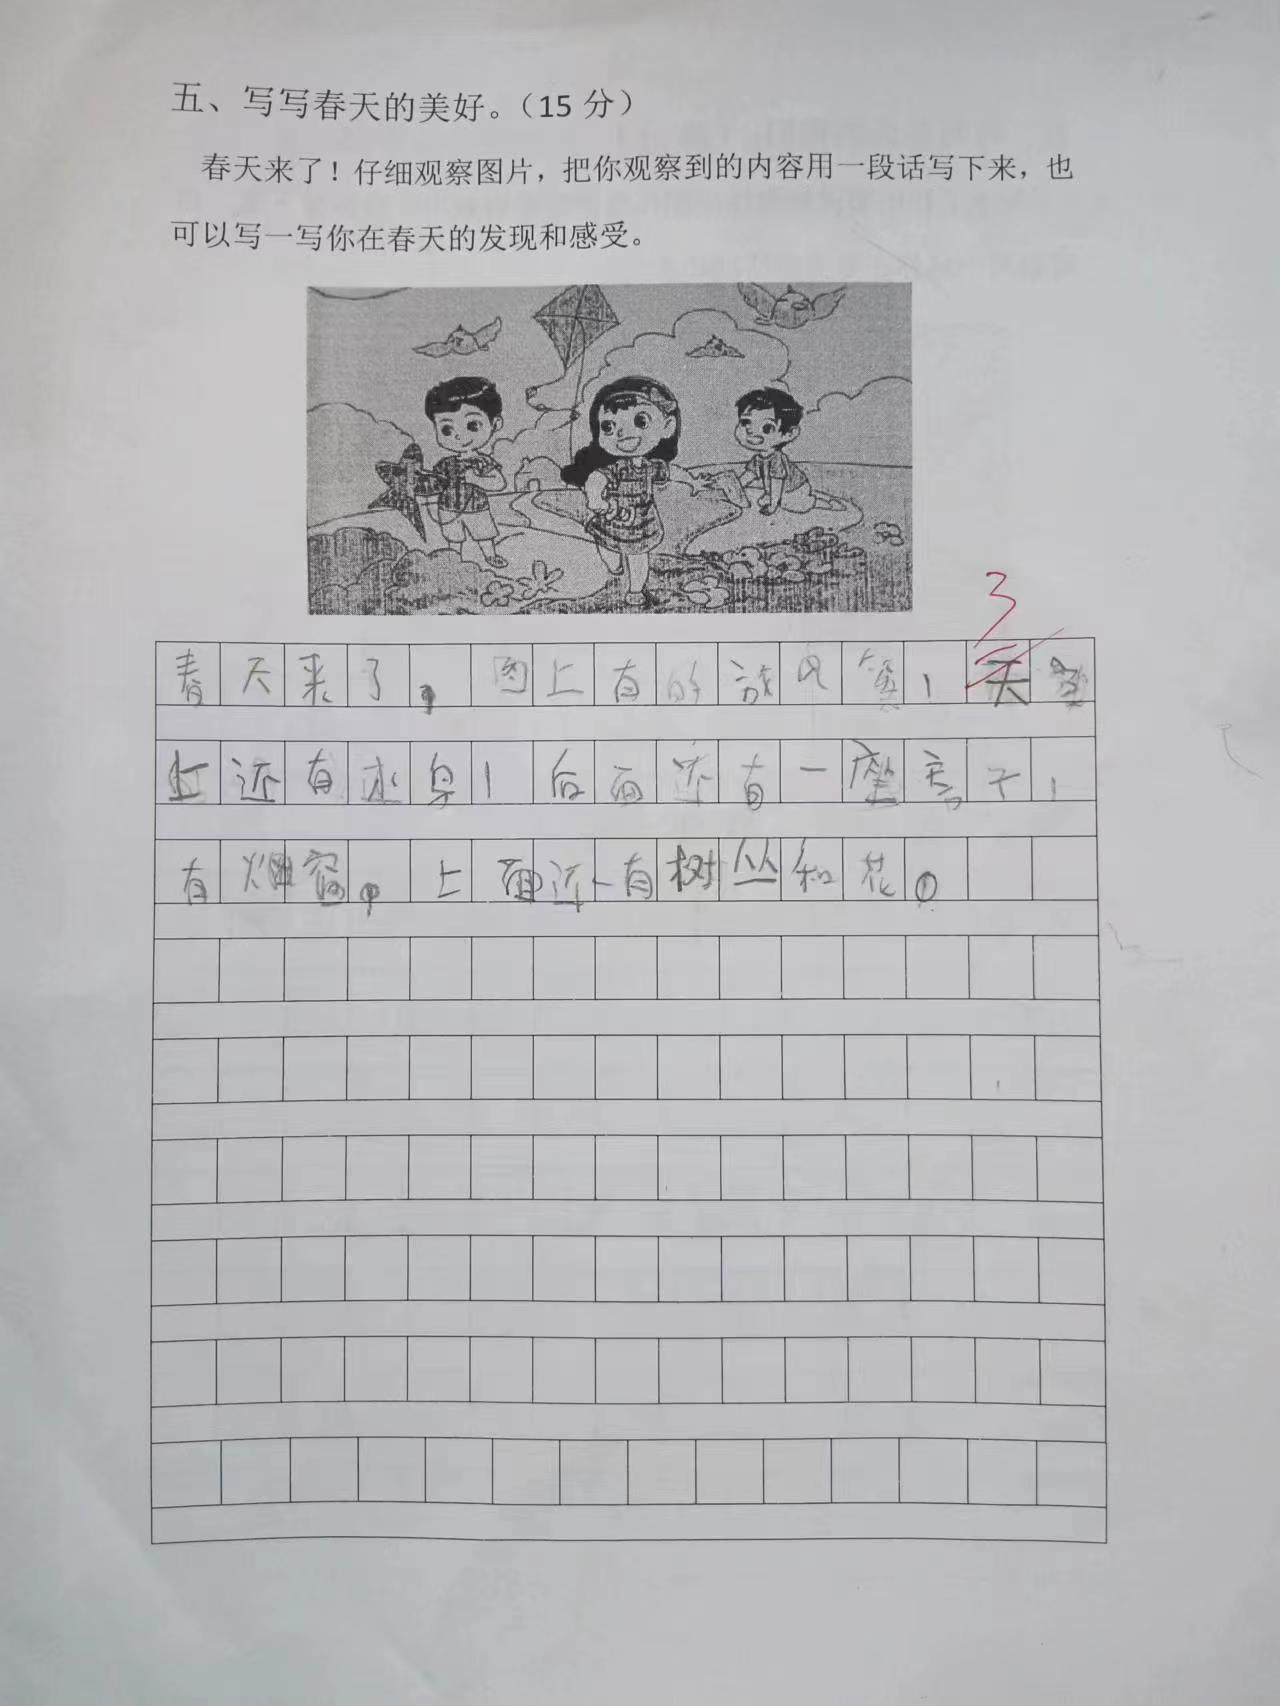 五、写写春天的美好。（15 分）
春天来了！仔细观察图片，把你观察到的内容用一段话写下来，也
可以写一写你在春天的发现和感受。
3
春天来了，图上有的放风筝，天空
上还有水鸟，后面还有一座房子，
有烟窗。上面还有树丛和花。